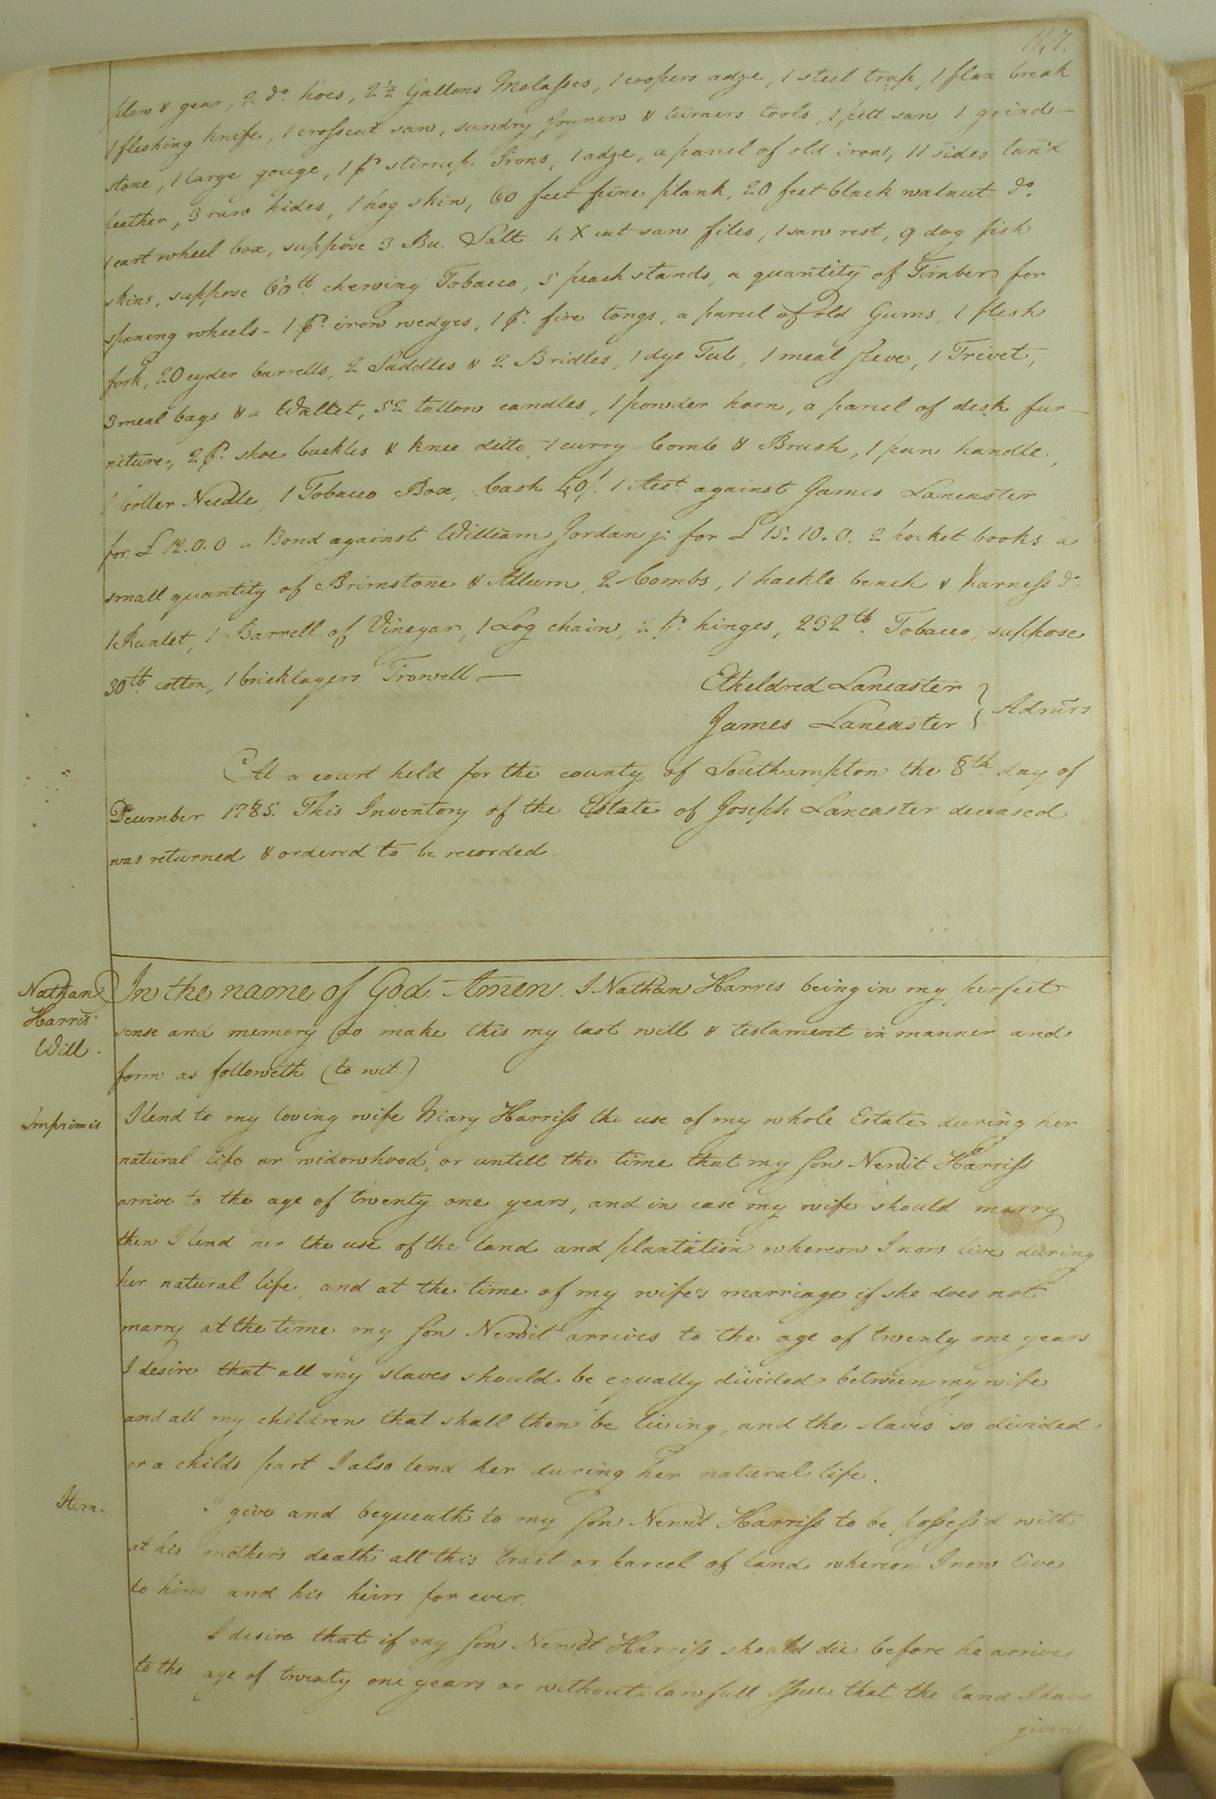 plow & gear, 2 do. hoes, 2½ Gallons Molasses, 1 coopers adze, 1 steel trap, 1 flax break
1 fleshing knife, 1 crosscut saw, sundry joyners & turners tools, 1 pitt saw 1 grind-
stone, 1 large gouge, 1 pr. stirrup Irons, 1 adze, a parcel of old iron, 11 sides tan'd
leather, 3 raw hides, 1 hog skin, 60 feet pine plank, 20 feet black walnut do.
1 cart wheel box, suppose 3 Bu. Salt. 4 X cut saw files, 1 saw rest, 9 dog fish
skins, suppose 60 lb. chewing Tobacco, 5 peach stands, a quantity of Timber for
spining wheels - 1 pr. iron wedges, 1 pr. fire tongs, a parcel of old Gums, 1 flesh
fork, 20 cyder barrells, 2 Saddles & 2 Bridles, 1 dye Tub, 1 meal sieve, 1 Trivet,
3 meal bags & a Wallet, 52 tallow candles, 1 powder horn, a parcel of desk fur-
niture, 2 pr. shoe buckles & knee ditto, 1 curry Comb & Brush, 1 pan handle,
1 Coller Needle, 1 Tobacco Box, Cash 40/. 1 Acct. against James Lancaster
for £ 12.0.0 a Bond against William Jordan jr. for £ 15.10.0. 2 pocket books a
small quantity of Brimstone & Allum, 2 Combs, 1 hackle bench & harness do.
1 Runlet, 1 Barrell of Vinegar, 1 Log chain, pr. hinges, 232 lb. Tobacco, suppose
30 lb. cotton, 1 bricklayers Trowell —
Etheldred Lancaster
James Lancaster } Admrs
At a court held for the county of Southampton the 8th day of
December 1785. This Inventory of the Estate of Joseph Lancaster deceased
was returned & ordered to be recorded.
Nathan
Harris
Will.
In the name of God Amen. I Nathan Harris being in my perfect
sense and memory do make this my last will & testament in manner and
form as followeth (to wit.)
Imprimis
I lend to my loving wife Mary Harriss the use of my whole Estate during her
natural life or widowhood, or untill the time that my son Newit Harriss
arrive to the age of twenty one years, and in case my wife should marry
then I lend her the use of the land and plantation whereon I now live during
her natural life, and at the time of my wife's marriage if she does not
marry at the time my son Newit arrives to the age of twenty one years
I desire that all my slaves should be equally divided between my wife
and all my children that shall then be living, and the slaves so divided
or a childs part I also lend her during her natural life.
Item.
I give and bequeath to my son Newit Harriss to be possess'd with
at his mother's death all this tract or parcel of land whereon I now live
to him and his heirs for ever.
I desire that if my son Newit Harriss should die before he arrives
to the age of twenty one years or without lawfull Issue that the land I have
given